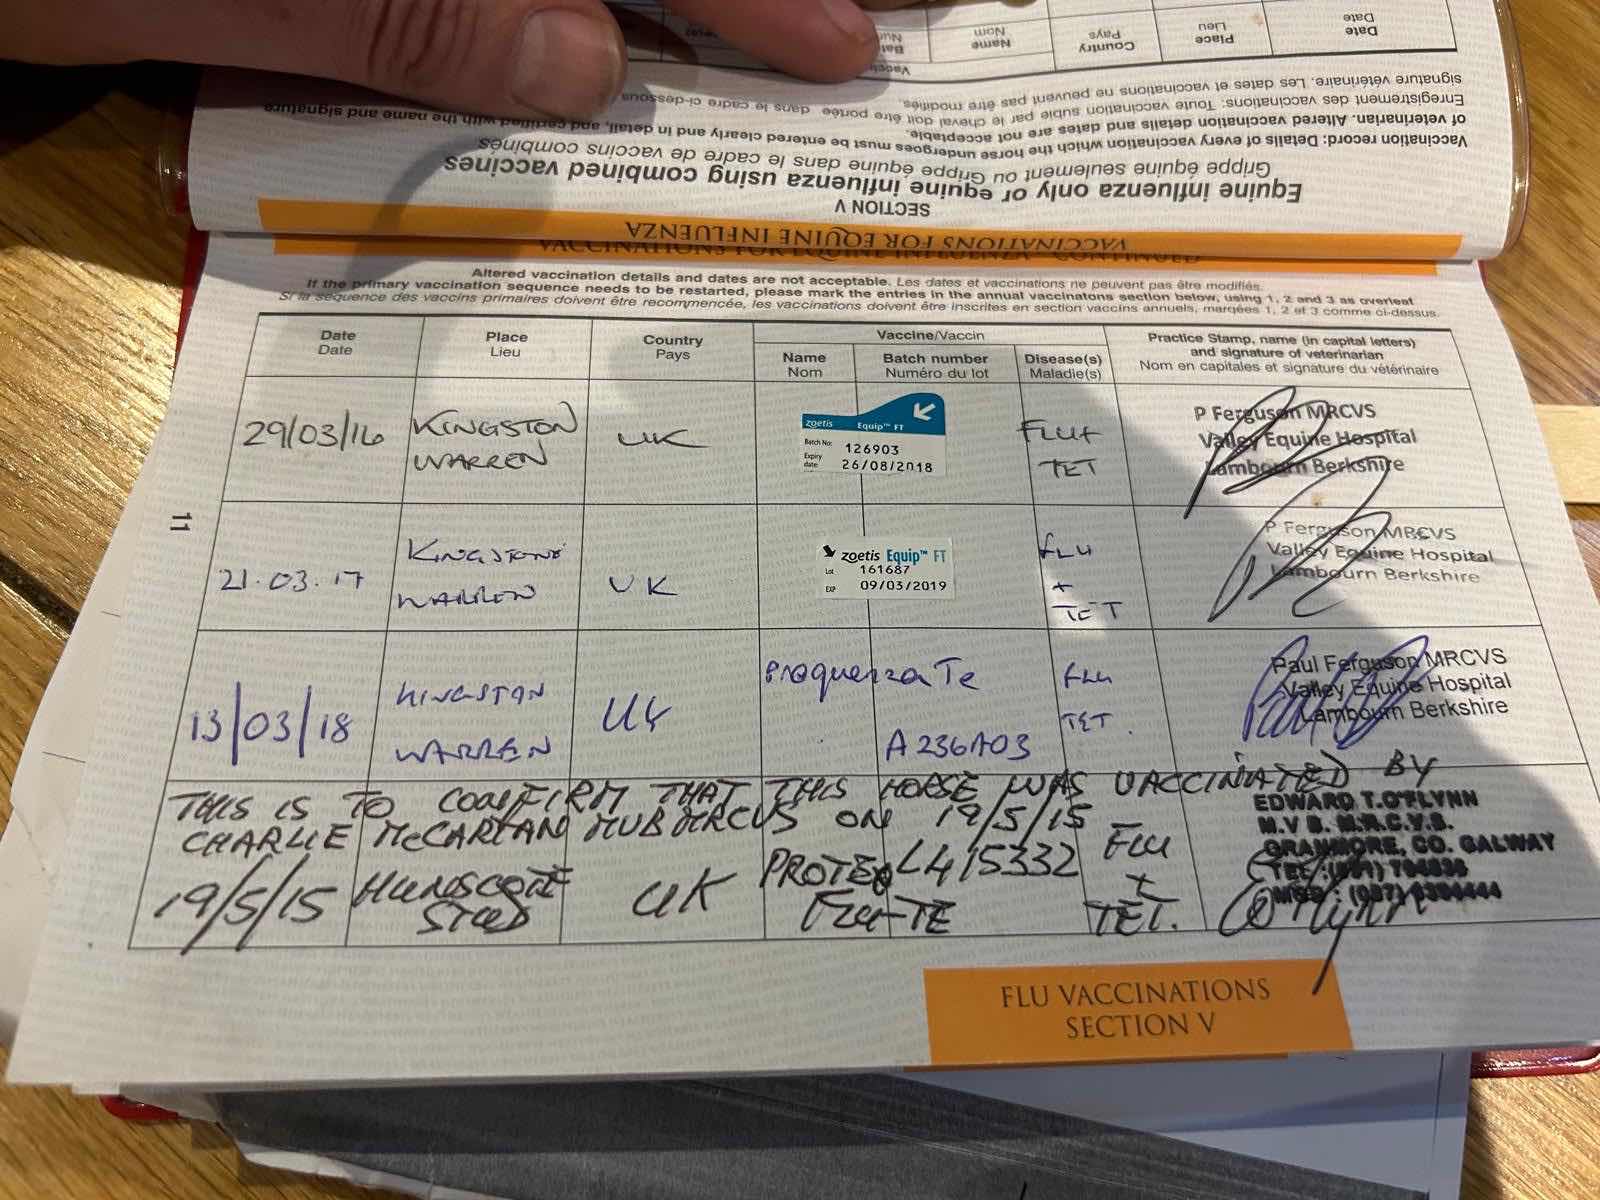 Date Place Country Name
Date Lieu Pays Nom
Vaccination record: Details of every vaccination which the horse undergoes must be entered clearly and in detail, and certified with the name and signature
of veterinarian. Altered vaccination details and dates are not acceptable.
Enregistrement des vaccinations: Toute vaccination subie par le cheval doit être portée dans le cadre ci-dessous
signature vétérinaire. Les dates et vaccinations ne peuvent pas être modifiés.
Equine influenza only of equine influenza using combined vaccines
Grippe équine seulement ou Grippe équine dans le cadre de vaccins combinés
SECTION V
VACCINATIONS FOR EQUINE INFLUENZA
VACCINATIONS FOR EQUINE INFLUENZA - CONTINUED
Altered vaccination details and dates are not acceptable. Les dates et vaccinations ne peuvent pas être modifiés.
If the primary vaccination sequence needs to be restarted, please mark the entries in the annual vaccinatons section below, using 1, 2 and 3 as overleaf
Si la sequence des vaccins primaires doivent être recommencée, les vaccinations doivent être inscrites en section vaccins annuels, marqées 1, 2 et 3 comme ci-dessus.
Date
Date
Place
Lieu
Country
Pays
Vaccine/Vaccin
Name
Nom
Batch number
Numéro du lot
Disease(s)
Maladie(s)
Practice Stamp, name (in capital letters)
and signature of veterinarian
Nom en capitales et signature du vétérinaire
29/03/16
KINGSTON
WARREN
UK
zoetis Equip™ FT
Batch No: 126903
Expiry date 26/08/2018
FLU+
TET
P Ferguson MRCVS
Valley Equine Hospital
Lambourn Berkshire
11
21.03.17
KINGSTONE
WARREN
UK
zoetis Equip™ FT
Lot 161687
EXP 09/03/2019
FLU
+
TET
P Ferguson MRCVS
Valley Equine Hospital
Lambourn Berkshire
13/03/18
KINGSTON
WARREN
UK
ProquenzaTe
A236A03
FLU
TET.
Paul Ferguson MRCVS
Valley Equine Hospital
Lambourn Berkshire
THIS IS TO CONFIRM THAT THIS HORSE WAS VACCINATED BY
CHARLIE McCARTAN MUB MRCVS ON 19/5/15
19/5/15
HUNSCOTE
STUD
UK
PROTEQ
FLU-TE
L415332
FLU
+
TET.
EDWARD T. O'FLYNN
M.V B. M.R.C.V.S.
CRANMORE, CO. GALWAY
FLU VACCINATIONS
SECTION V